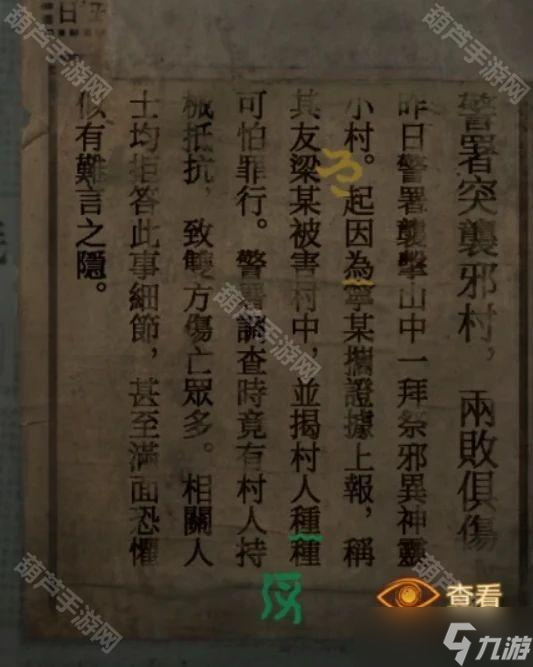 警署突襲邪村，兩敗俱傷
昨日警署襲擊山中一拜祭邪異神靈
小村。起因為寧某攜證據上報，稱
其友梁某被害村中，並揭村人種種
可怕罪行。警署調查時竟有村人持
械抵抗，致雙方傷亡眾多。相關人
士均拒答此事細節，甚至滿面恐懼
似有難言之隱。
查看
九游
葫芦手游网
葫芦手游网
葫芦手游网
葫芦手游网
葫芦手游网